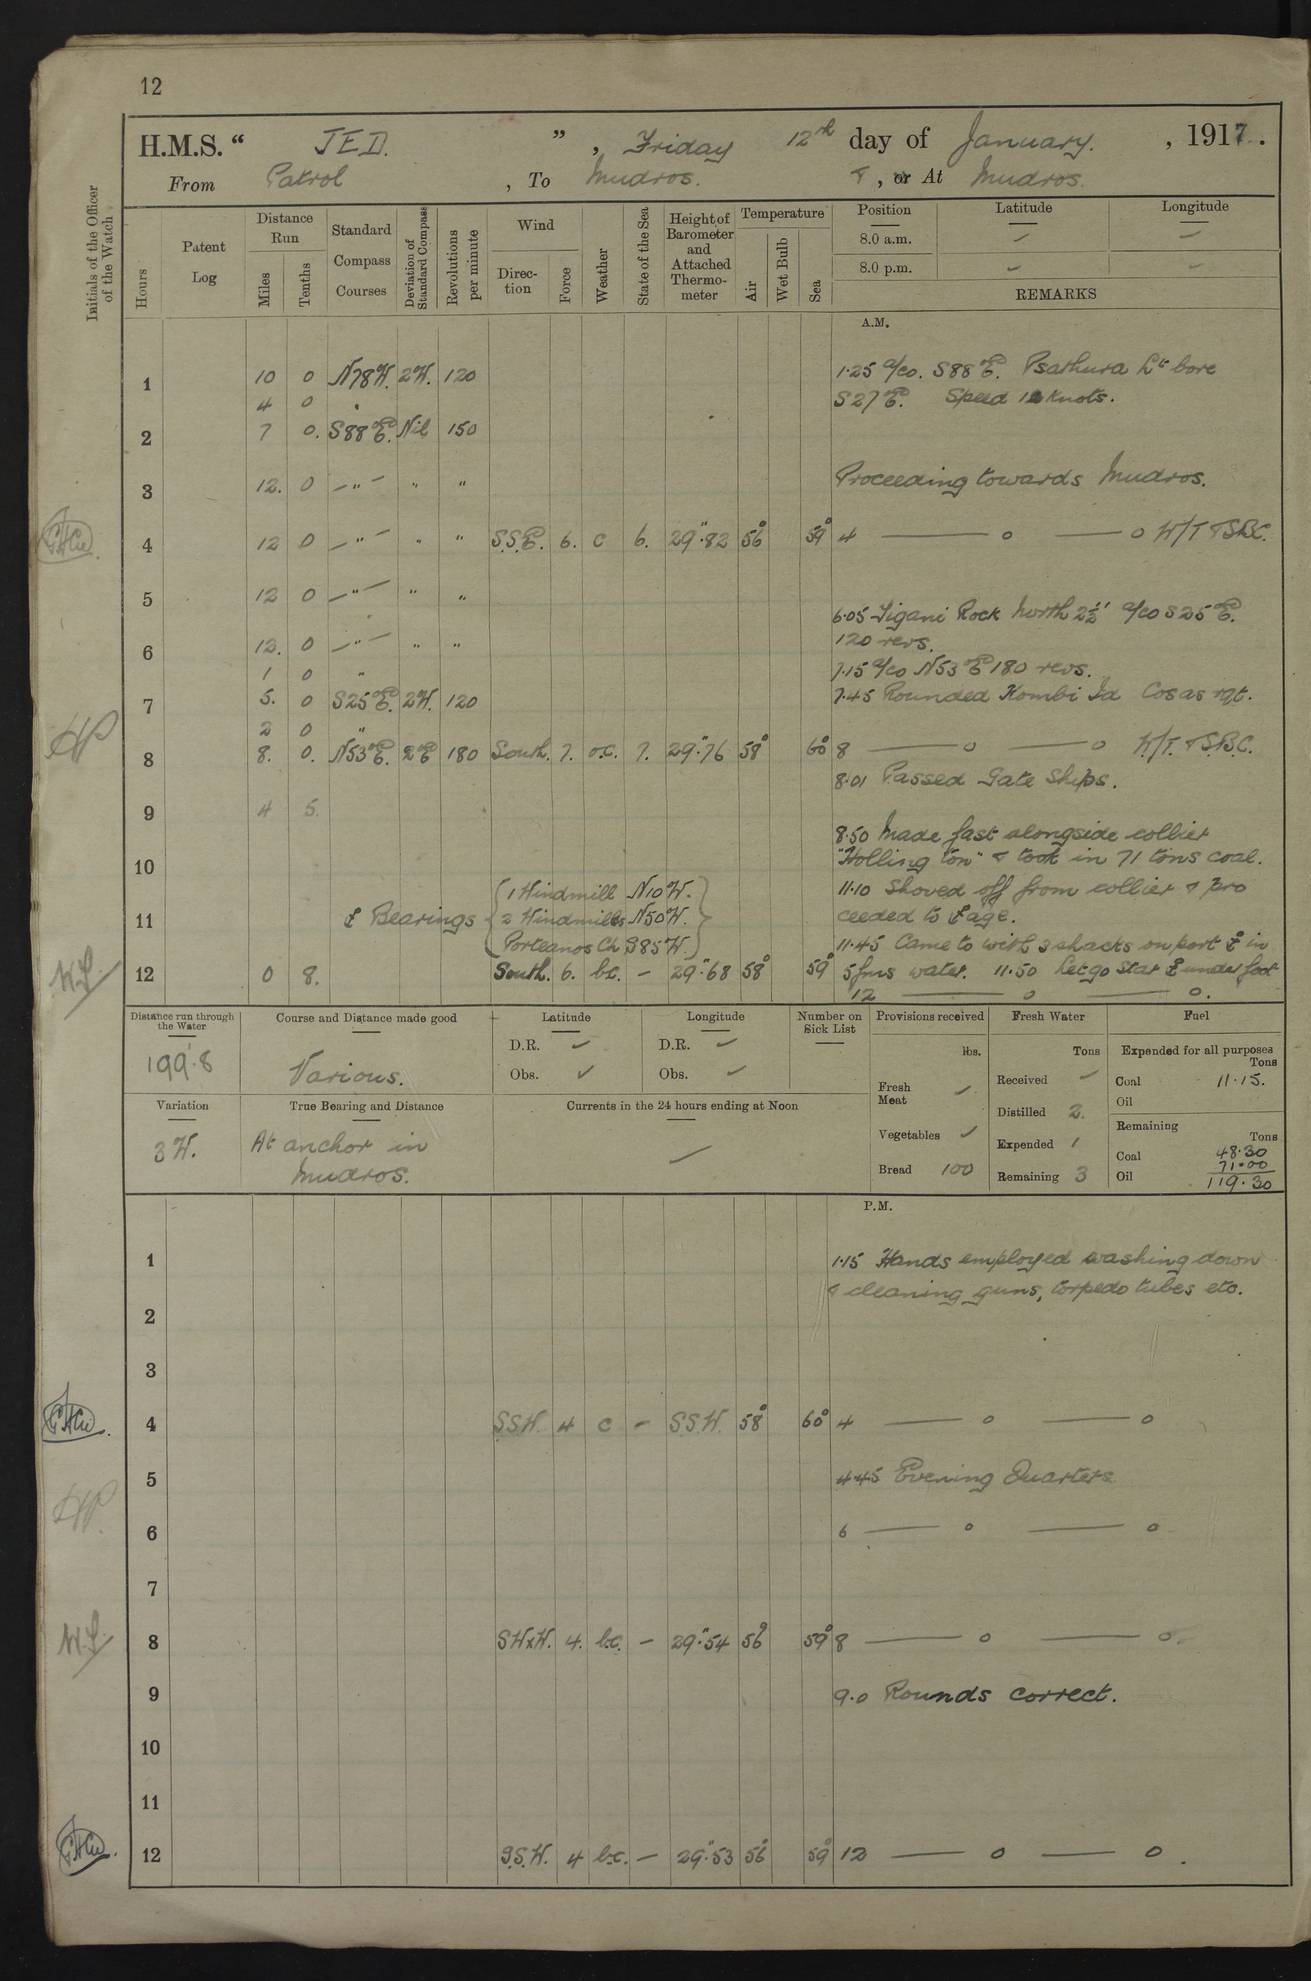 12
H.M.S. “ JED. ” , Friday 12th day of January. , 1917.
From Patrol , To Mudros. & , or At Mudros.
Initials of the Officer of the Watch
Hours
Patent Log
Distance Run
Miles
Tenths
Standard Compass Courses
Deviation of Standard Compass
Revolutions per minute
Wind
Direction
Force
Weather
State of the Sea
Height of Barometer and Attached Thermometer
Temperature
Air
Wet Bulb
Sea
Position Latitude Longitude
8.0 a.m. ✓ ✓
8.0 p.m. ✓ ✓
REMARKS
A.M.
1 10 0 N78W. 2W. 120 1.25 a/co. S88°E. Psathura Lt bore
4 0 " S27°E. Speed 12 Knots.
2 7 0. S88°E. Nil 150
3 12. 0 — " — " " Proceeding towards Mudros.
4 12 0 — " — " " S.S.E. 6. c 6. 29".82 56° 59° 4 —— o —— o W/T & S.B.C.
5 12 0 — " — " "
6.05 Tigani Rock North 2½' a/co S25°E.
6 12. 0 — " — " " 120 revs.
1 0 " 7.15 a/co N53°E 180 revs.
7 5. 0 S25°E. 2W. 120 7.45 Rounded Kombi Id Cos as rqt.
2 0 "
8 8. 0. N53°E. 2°E 180 South. 7. o.c. 7. 29".76 58° 60° 8 —— o —— o W/T. & S.B.C.
8.01 Passed Gate Ships.
9 4 5.
8.50 Made fast alongside collier
10 "Hollington" & took in 71 tons coal.
1 Windmill N10W. 11.10 Shoved off from collier & pro
11 Bearings 2 Windmills N50W. ceeded to age.
Porteanos Ch S85W. 11.45 Came to with 3 shacks on port in
12 0 8. South. 6. b.c. — 29".68 58° 59° 5 fms water. 11.50 Let go Star under foot
12 —— o —— o.
Distance run through the Water
199.8
Course and Distance made good
Various.
Latitude
D.R. ✓
Obs. ✓
Longitude
D.R. ✓
Obs. ✓
Number on Sick List
Provisions received
lbs.
Fresh Meat ✓
Vegetables ✓
Bread 100
Fresh Water
Tons
Received ✓
Distilled 2.
Expended 1
Remaining 3
Fuel
Expended for all purposes
Tons
Coal 11.15.
Oil
Remaining
Tons
Coal 48.30
71.00
Oil 119.30
Variation
3W.
True Bearing and Distance
At anchor in
Mudros.
Currents in the 24 hours ending at Noon
P.M.
1 1.15 Hands employed washing down
& cleaning guns, torpedo tubes etc.
2
3
4 S.S.W. 4 c — S.S.W. 58° 60° 4 —— o —— o
5 4.45 Evening Quarters
6 6 —— o —— o
7
8 SWxW. 4. b.c. — 29".54 56° 59° 8 —— o —— o
9 9.0 Rounds correct.
10
11
12 S.S.W. 4 b.c. — 29".53 56° 59° 12 —— o —— o.